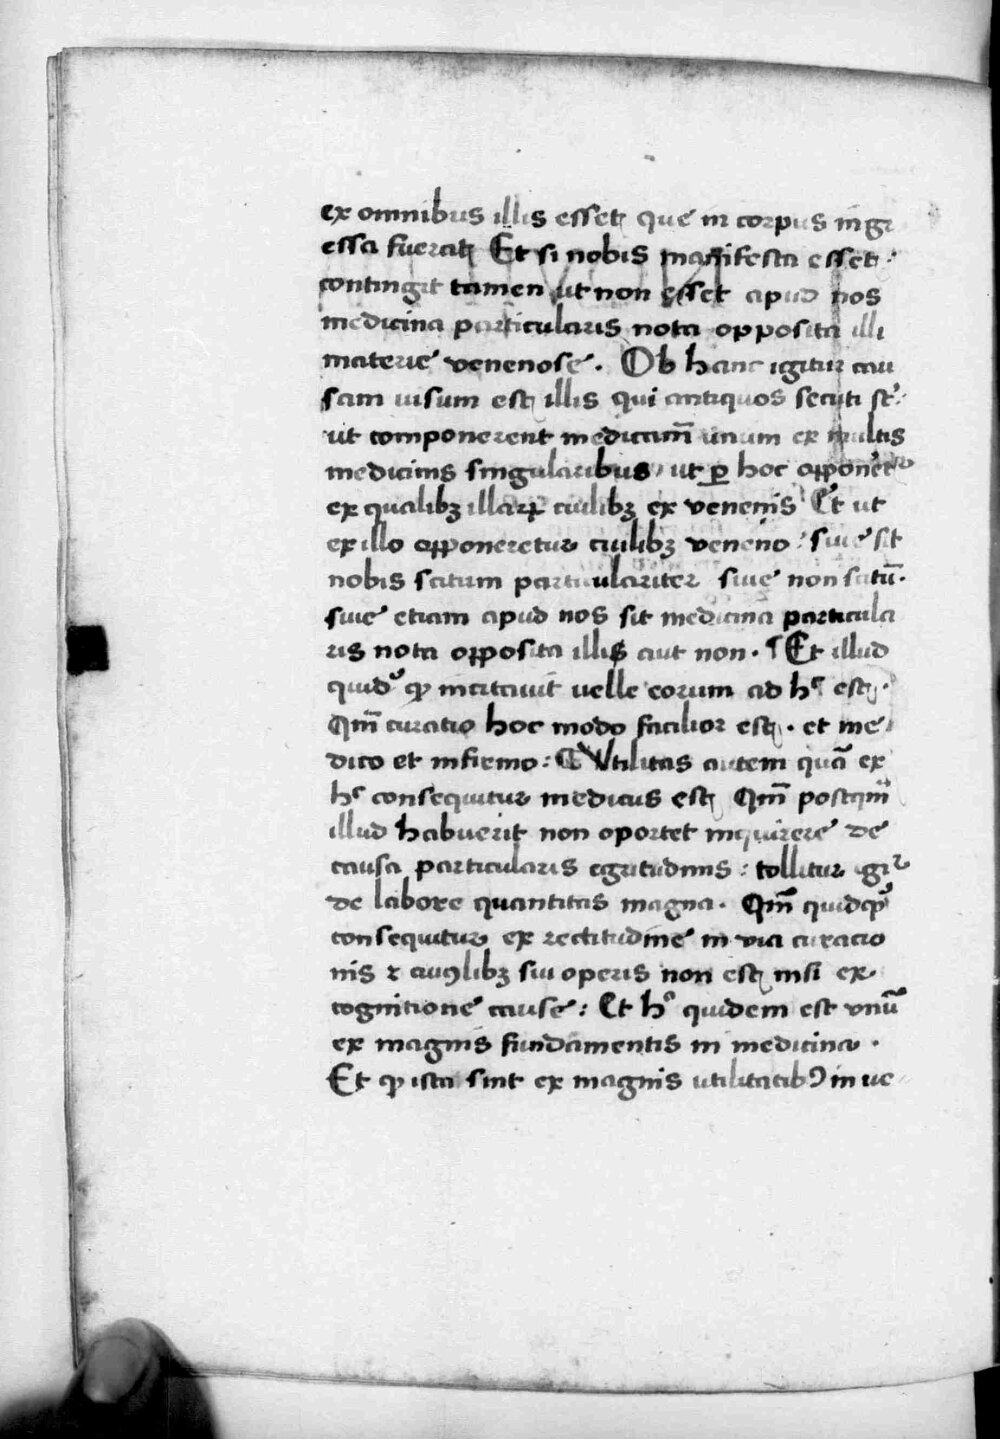 ex omnibus illis esset que in corpus ingr
essa fuerat Et si nobis manifesta esset :
contingit tamen ut non esset apud nos
medicina particularis nota opposita illi
materie venenose . Ob hanc igitur cau
sam uisum est illis qui antiquos secuti st᷒ :
ut componerent medicinā unum ex multis
medicinis singularibus / ut ꝑ hoc apponeret᷑
ex qualibꝫ illaꝝ cuilibꝫ ex venenis Et ut
ex illo apponeretur cuilibꝫ veneno : siue sit
nobis scitum particulariter siue non scitū .
siue etiam apud nos sit medicina particula
ris nota opposita illis aut non . ¶ Et illud
quidͦ ꝙ incitauit uelle eorum ad hͨ est .
Qm̄ curatio hoc modo facilior est . et me
dico et infirmo : ¶ Vtilitas autem quā ex
hͨ consequitur medicus est Qm̄ postqm̄
illud habuerit non oportet inquirere de
causa particularis egritudinis : tollitur gͥr
de labore quantitas magna . Qm̄ quidqͥd
consequitur ex rectitudine in via curacio
nis ⁊ cuiꝰlibꝫ sui operis non est nisi ex
cognitione cause : Et hͦ quidem est vnū
ex magnis fundamentis in medicina .
Et ꝙ ista sint ex magnis utilitatibꝰ in ue